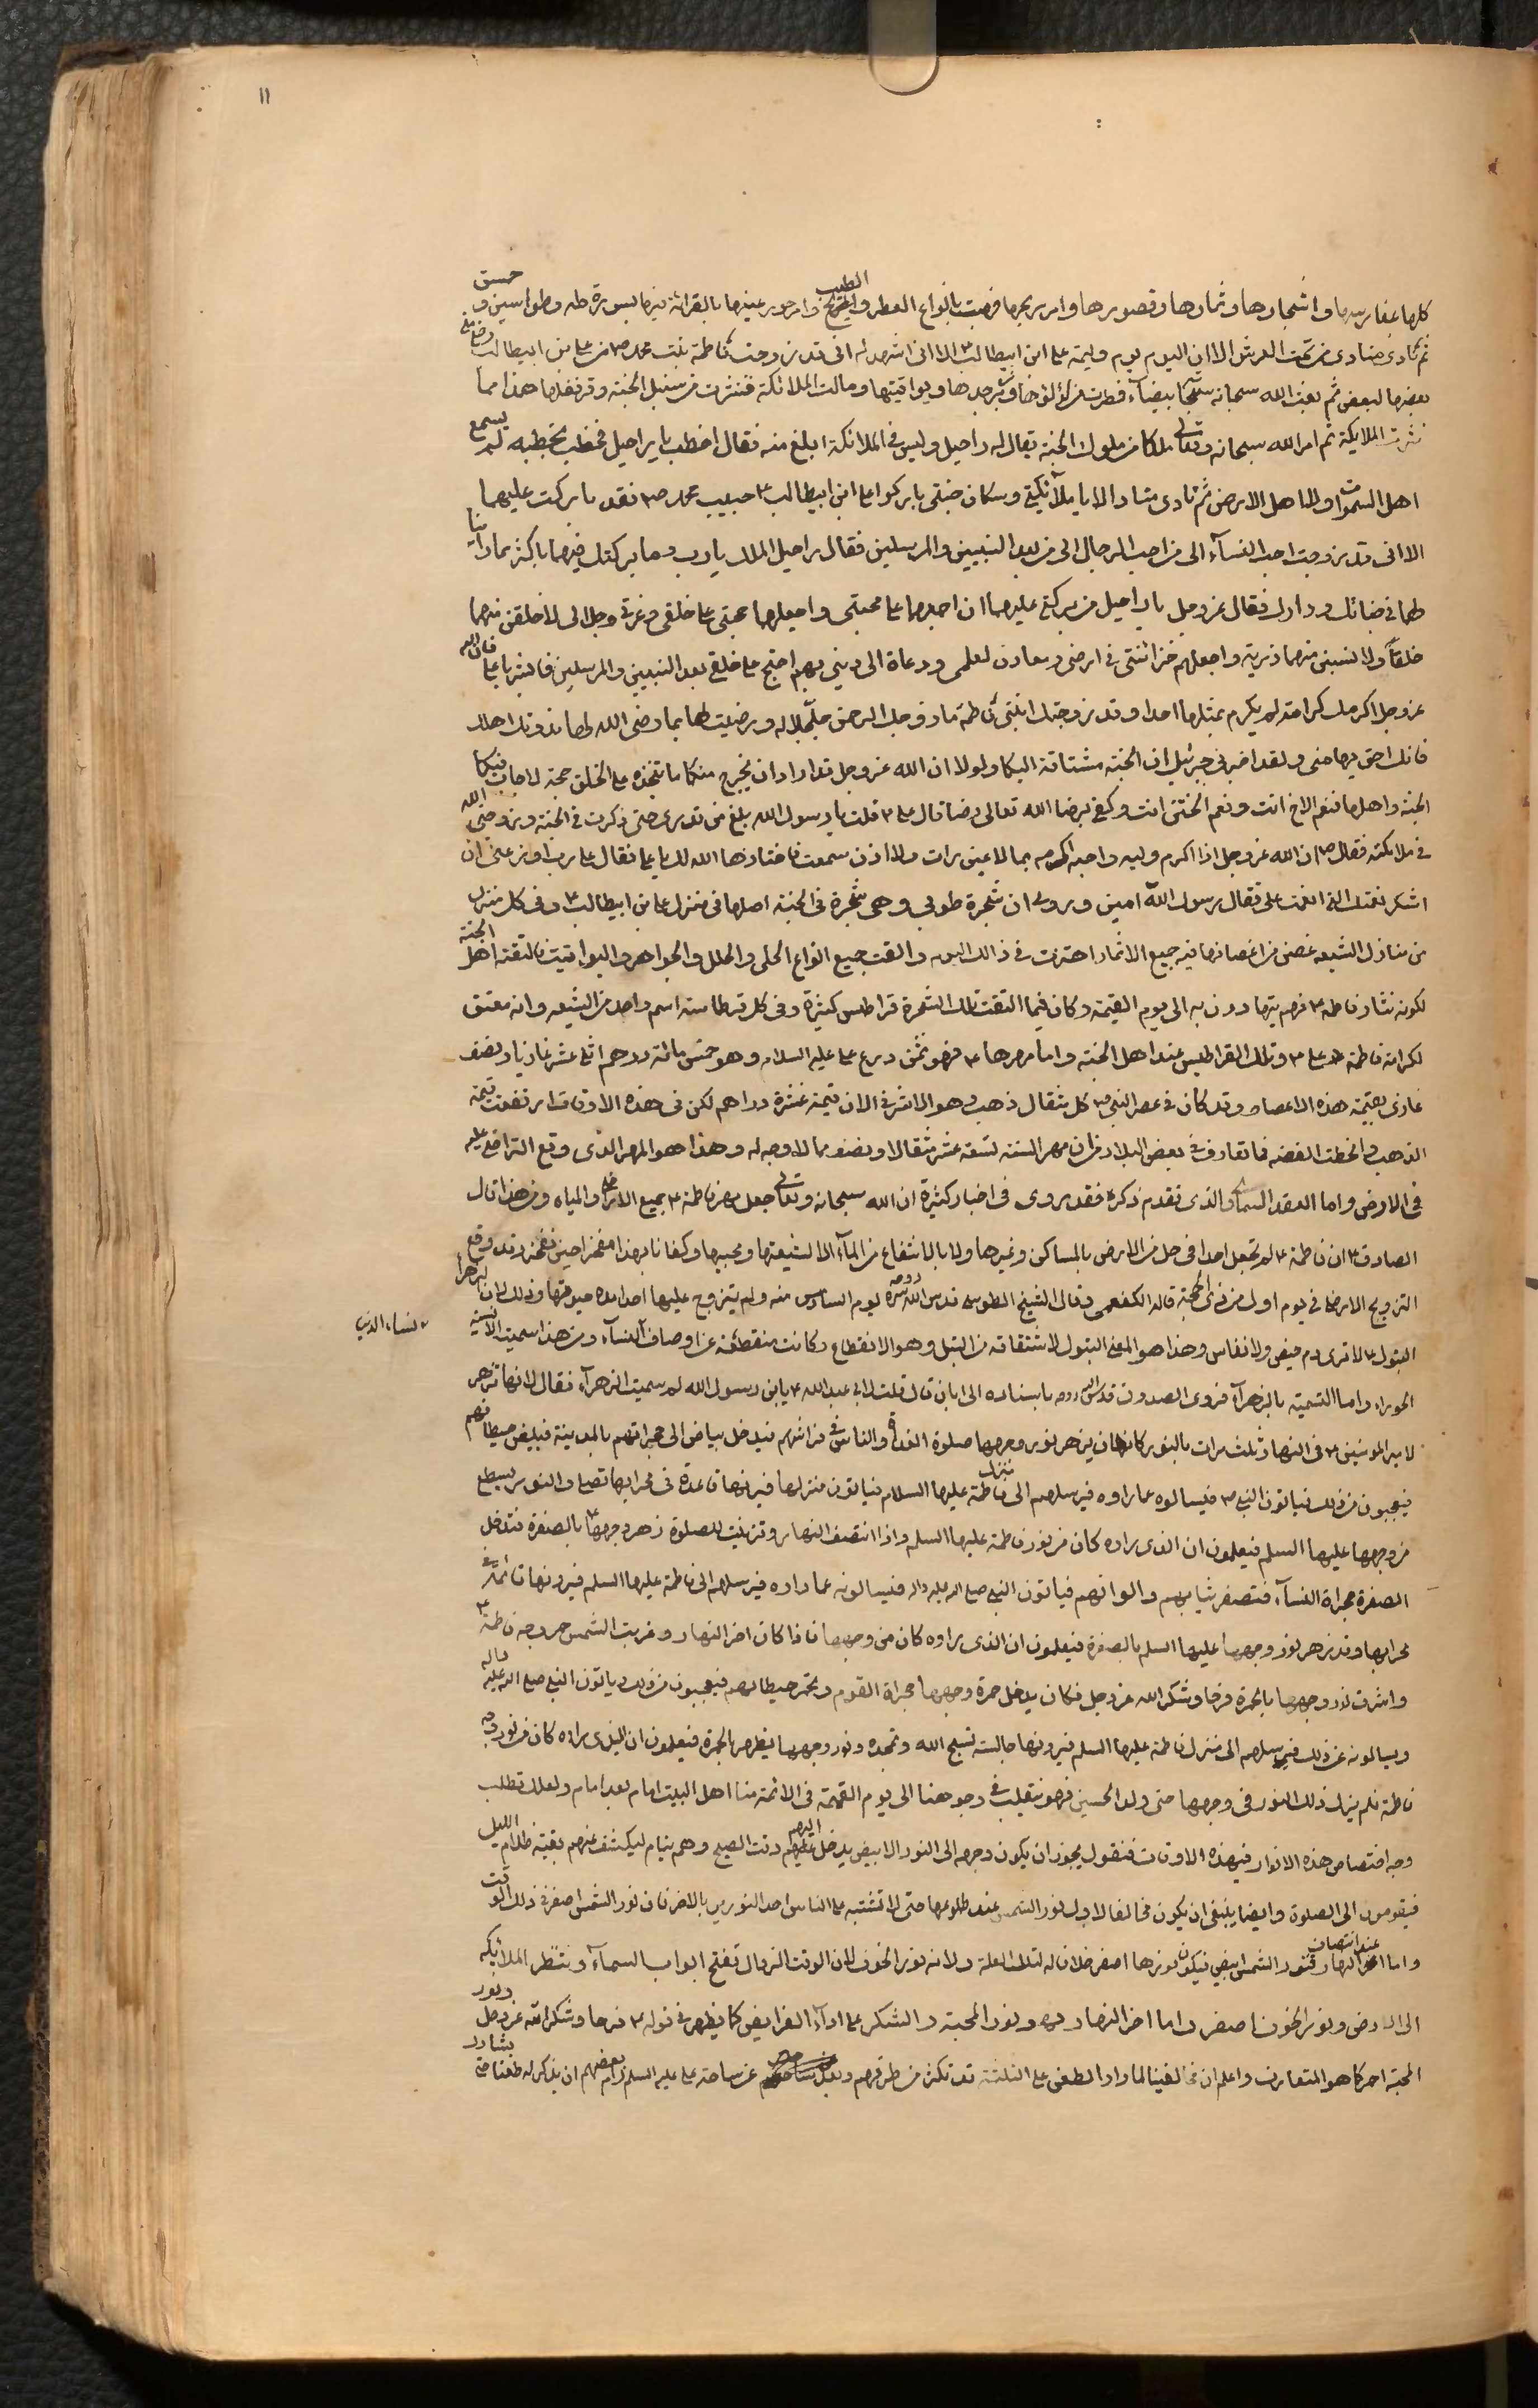 ١١
كلها مغارسها واشجارها وثمارها وقصورها وامر ريحها فهبت بانواع العطر والطيب وامر حور عينها بالقرائة فيها بسورة طه وطواسين وحمسق
ثم نادى مناد من تحت العرش الا ان اليوم يوم وليمة على ابن ابيطالب ع الا انى اشهدكم انى قد زوجت فاطمة بنت محمد ص من على بن ابيطالب رضا منى
بعضها لبعض ثم بعث الله سبحانه سحابة بيضآء فطرت من لؤلؤها وزبرجدها ويواقيتها وقامت الملائكة فنثرت من سنبل الجنة وقرنفلها هذا مما
نثرت الملائكة ثم امر الله سبحانه وتعالى ملكا من ملوك الجنة يقال له راحيل وليس فى الملائكة ابلغ منه فقال اخطب يا راحيل فخطب بخطبه لم يسمع
اهل السموات ولا اهل الارض ثم نادى مناد الا يا ملآئكتى وسكان جنتى باركوا على ابن ابيطالب ع حبيب محمد ص فقد باركت عليهما
الا انى قد زوجت احب النسآء الى من احب الرجال الى من بعد النبيين والمرسلين فقال راحيل الملك يارب وما بركتك فيهما باكثر مما راينا
لهما فى جنانك ودارك فقال عزوجل يا راحيل من بركتى عليهما ان اجمعهما على محبتى واجعلهما حجتى على خلقى وعزتى وجلالى لاخلقن منهما
خلقا ولانشئن منهما ذرية واجعلهم خزائنتى فى ارضى ومعادن لعلمى ودعاة الى دينى بهم احتج على خلقى بعد النبيين والمرسلين فابشر يا على فان الله
عزوجل اكرمك كرامة لم يكرم بمثلها احدا وقد زوجتك ابنتى فاطمة ما زوجك الرحمن ورضيت لها بما رضى الله لها فدونك اهلك
فانك احق بها منى ولقد اخبرنى جبرئيل ان الجنة مشتاقة اليكما ولولا ان الله عزوجل قد اراد ان يخرج منكما ما يتخذه على الخلق حجة لاجاب فيكما
الجنة واهلها فنعم الاخ انت ونعم الختن انت وكفى برضا الله تعالى رضا قال على ع قلت يا رسول الله بلغ من قدرى حتى ذكرت فى الجنة وزوجنى الله
فى ملائكته فقال ص ان الله عزوجل اذا اكرم وليه واحبه اكرمه بما لا عين رات ولا اذن سمعت فاختارها الله لك يا على فقال على رب اوزعنى ان
اشكر نعمتك التى انعمت على فقال رسول الله امين وروى ان شجرة طوبى وهى شجرة فى الجنة اصلها فى منزل على بن ابيطالب ع وفى كل منزل
من منازل الشيعه غصن من اغصانها فيه جميع الاثمار اهتزت فى ذالك اليوم والقت جميع انواع الحلى والحلل والجواهر واليواقيت فالتقته اهل الجنة
لكونه نثار فاطمه ع فهم يتهادون به الى يوم القيمة وكان فيما القت تلك الشجرة قراطيس كثيرة وفى كل قرطاسة اسم واحد من الشيعه وانه معتق
لكرامة فاطمة وعلى ع وتلك القراطيس عند اهل الجنة واما مهرها ع فهو ثمن درع على عليه السلام وهو خمس مائة درهم اثنى عشر غازيا ونصف
غازى بقيمة هذه الاعصار وقد كان فى عصر النبى ص كل مثقال ذهب وهو الاشرفى الان قيمة عشرة دراهم لكن فى هذه الاوقات ارتفعت قيمة
الذهب وانحطت الفضه فما تعارف فى بعض البلاد من ان مهر السنة تسعة عشر مثقالا ونصفا مما لا وجه له وهذا هو المهر الذى وقع التراضى عليه
فى الارض واما العقد السماوى الذى تقدم ذكره فقد روى فى اخبار كثيرة ان الله سبحانه وتعالى جعل مهر فاطمة ع جميع الاراضى والمياه ومن هذا قال
الصادق ع ان فاطمة ع لم تجعل احدا فى حل من الارض بالمساكن وغيرها ولا بالانتفاع من المآء الا لشيعتها ومحبيها وكفانا بهذا مفخرا حين نفخر وقد وقع
التزويج الارضى فى يوم اول من ذى الحجة قاله الكفعمى وقال الشيخ الطوسى قدس الله روحه يوم السادس منه ولم يتزوج عليها احدا مدة حيوتها وذلك لان الزهرا
البتول ع لا ترى دم حيض ولا نفاس وهذا هو المعنى البتول لاشتقاقه من البتل وهو الانقطاع وكانت منقطعة عن اوصاف النسآء ومن هذا سميت الانسية
ء لنساء الدنيا
الحوراء واما التسمية بالزهرآء فروى الصدوق قدس الله روحه باسناده الى ابان قال قلت لابى عبد الله ع يابن رسول الله لم سميت الزهرآء فقال لانها تزهر
لامير المومنين ع فى النهار ثلث مرات بالنور كان يزهر نور وجهها صلوة الغداة والناس فى فراشهم فيدخل بياض الى حجراتهم بالمدينة فتبيض حيطانهم
فيعجبون من ذلك فياتون النبى ص فيسالوه عما راوه فيرسلهم الى منزل فاطمة عليها السلام فياتون منزلها فيرونها قاعدة فى محرابها تصلى والنور يسطع
من وجهها عليها السلم فيعلمون ان الذى راوه كان من نور فاطمة عليها السلم واذا انتصف النهار وترتبت للصلوة زهر وجهها ع بالصفرة فتدخل
الصفرة حجراة النسآء فتصفر ثيابهم والوانهم فياتون النبى صلى الله عليه واله فيسالونه عما راوه فيرسلهم الى فاطمة عليها السلم فيرونها قائمة فى
محرابها وقد زهر نور وجهها عليها السلم بالصفرة فيعلمون ان الذى راوه كان من وجهها فاذا كان اخر النهار وغربت الشمس احمر وجه فاطمة ع
واشرق نور وجهها بالحمرة فرحا وشكرا لله عز وجل فكان يدخل حمرة وجهها حجراة القوم وتحمر حيطانهم فيعجبون من ذلك وياتون النبى صلى الله عليه واله
ويسالونه عن ذلك فيرسلهم الى منزل فاطمة عليها السلم فيرونها جالسة تسبح الله وتمجده ونور وجهها يظهر بالحمرة فيعلمون ان الذى راوه كان من نور وجه
فاطمة فلم يزل ذلك النور فى وجهها حتى ولد الحسين فهو يتقلب فى وجوهنا الى يوم القيمة فى الائمة منا اهل البيت امام بعد امام ولعلك تطلب
وجه اختصاص هذه الانوار فى هذه الاوقات فنقول يجوز ان يكون وجه الى النور الابيض يدخل اليهم وقت الصبح وهم نيام ليكشف عنهم بقية ظلام الليل
فيقومون الى الصلوة وايضا ينبغى ان يكون مخالفا لاول نور الشمس عند طلوعها حتى لا تشتبه على الناس احد النورين بالاخر فان نور الشمس اصفر فى ذلك الوقت
واما عند انتصاف النهار فنور الشمس ابيض فيكون نورها اصفر خلافا له لتلك العلة ولانه نور الخوف لان الوقت الزوال تفتح ابواب السمآء وينظر الملائكه
الى الارض ونور الخوف اصفر واما اخر النهار فهو نور المحبة والشكر على ادآء الفرايض كما يظهر فى قوله ع فرحا وشكرا لله عز وجل ونور
المحبة احمر كما هو المتعارف واعلم ان مخالفينا لما راوا الطعن على الثلثة قد تكثر من طرقهم عن ساحة على عليه السلم رام بعضهم ان يذكر له طعنا حتى يشارك